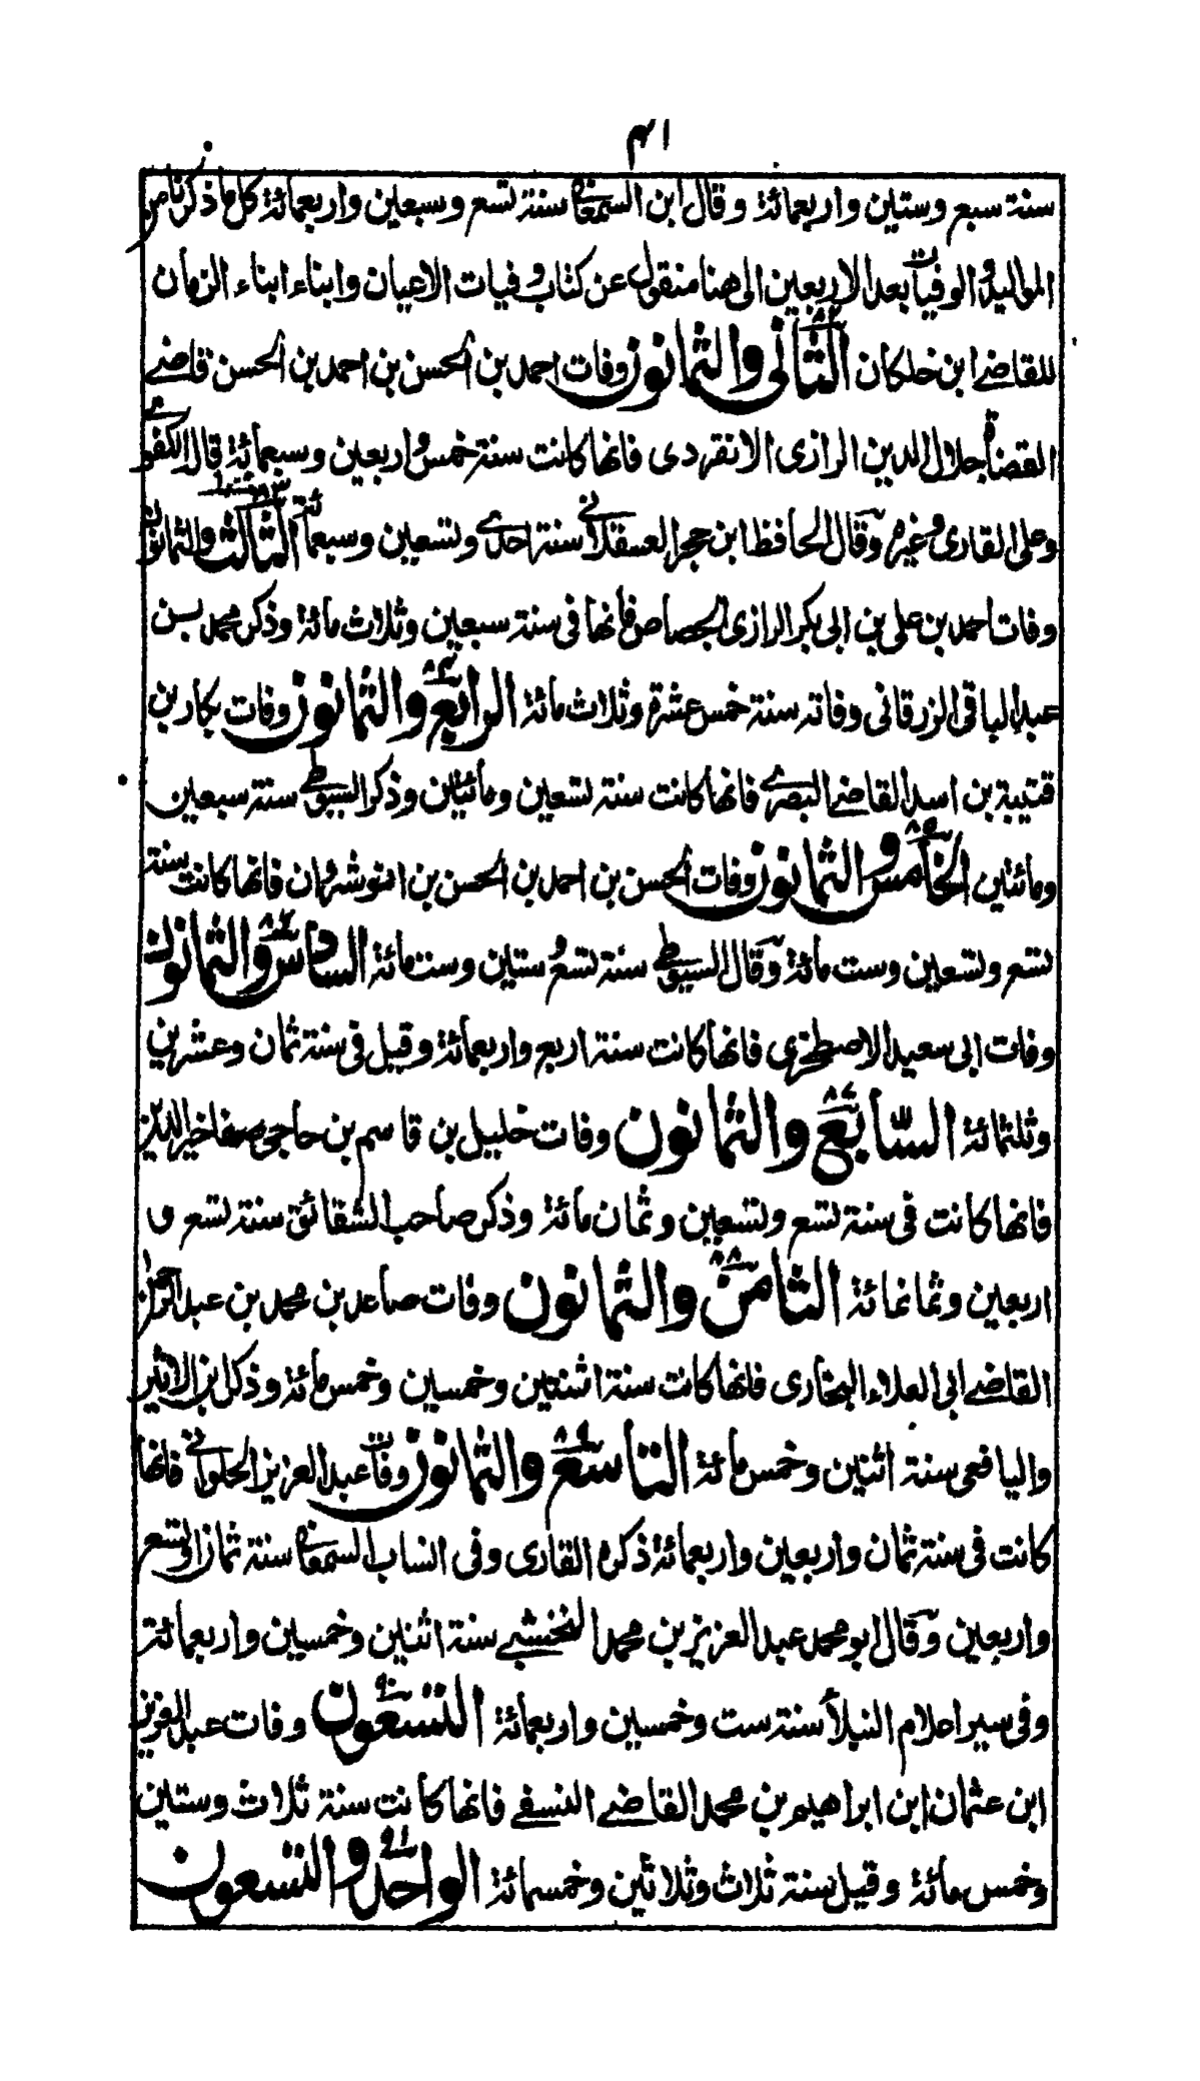 ۴۱
سنة سبع وستين واربعمائة وقال ابن السمعانى سنة تسع وسبعين واربعمائة كل ما ذكرنا من
المواليد والوفيات بعد الاربعين الى هنا منقول عن كتاب وفيات الاعيان وابناء ابناء الزمان
للقاضى ابن خلكان الثانى والثمانون ۸۲ وفات احمد بن الحسن بن احمد بن الحسن قاضى
القضاة جلال الدين الرازى الانقردى فانها كانت سنة خمس واربعين وسبعمائة قال الكفوى
وعلى القارى وغيره وقال الحافظ ابن حجر العسقلانى سنة احدى وتسعين وسبعمائة الثالث والثمانون ۸۳
وفات احمد بن على بن ابى بكر الرازى الجصاص فانها فى سنة سبعين وثلاث مائة وذكر محمد بن
عبد الباقى الزرقانى وفاته سنة خمس عشرة وثلاث مائة الرابع والثمانون ۸۴ وفات بكار بن
قتيبة بن اسد القاضى البصرى فانها كانت سنة تسعين ومائتين وذكر السيوطى سنة سبعين
ومائتين الخامس والثمانون ۸۵ وفات الحسن بن احمد بن الحسن بن انوشروان فانها كانت سنة
تسع وتسعين وست مائة وقال السيوطى سنة تسع وستين وست مائة السادس والثمانون ۸۶
وفات ابى سعيد الاصطخرى فانها كانت سنة اربع واربعمائة وقيل فى سنة ثمان وعشرين
وثلثمائة السابع والثمانون ۸۷ وفات خليل بن قاسم بن حاجى صفا خير الدين
فانها كانت فى سنة تسع وتسعين وثمان مائة وذكر صاحب الشقائق سنة تسع و
اربعين وثمانمائة الثامن والثمانون ۸۸ وفات صاعد بن محمد بن عبد الرحمن
القاضى ابى العلاء البخارى فانها كانت سنة اثنتين وخمسين وخمس مائة وذكر ابن الاثير
واليافعى سنة اثنين وخمس مائة التاسع والثمانون ۸۹ وفات عبد العزيز الحلوانى فانها
كانت فى سنة ثمان واربعين واربعمائة ذكره القارى وفى انساب السمعانى سنة ثمان او تسع
واربعين وقال ابو محمد عبد العزيز بن محمد النخشبى سنة اثنين وخمسين واربعمائة
وفى سير اعلام النبلاء سنة ست وخمسين واربعمائة التسعون ۹۰ وفات عبد العزيز
ابن عثمان ابن ابراهيم بن محمد القاضى النسفى فانها كانت سنة ثلاث وستين
وخمس مائة وقيل سنة ثلاث وثلاثين وخمسمائة الواحد والتسعون ۹۱